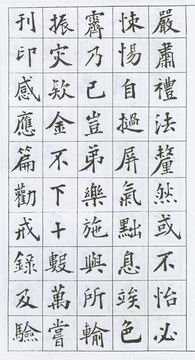 嚴肅禮法釐然或不怡必
悚惕自撾屏氣黜息竢色
霽乃已豈弟樂施與所輸
振灾欵金不下十數萬嘗
刊印感應篇勸戒錄及驗